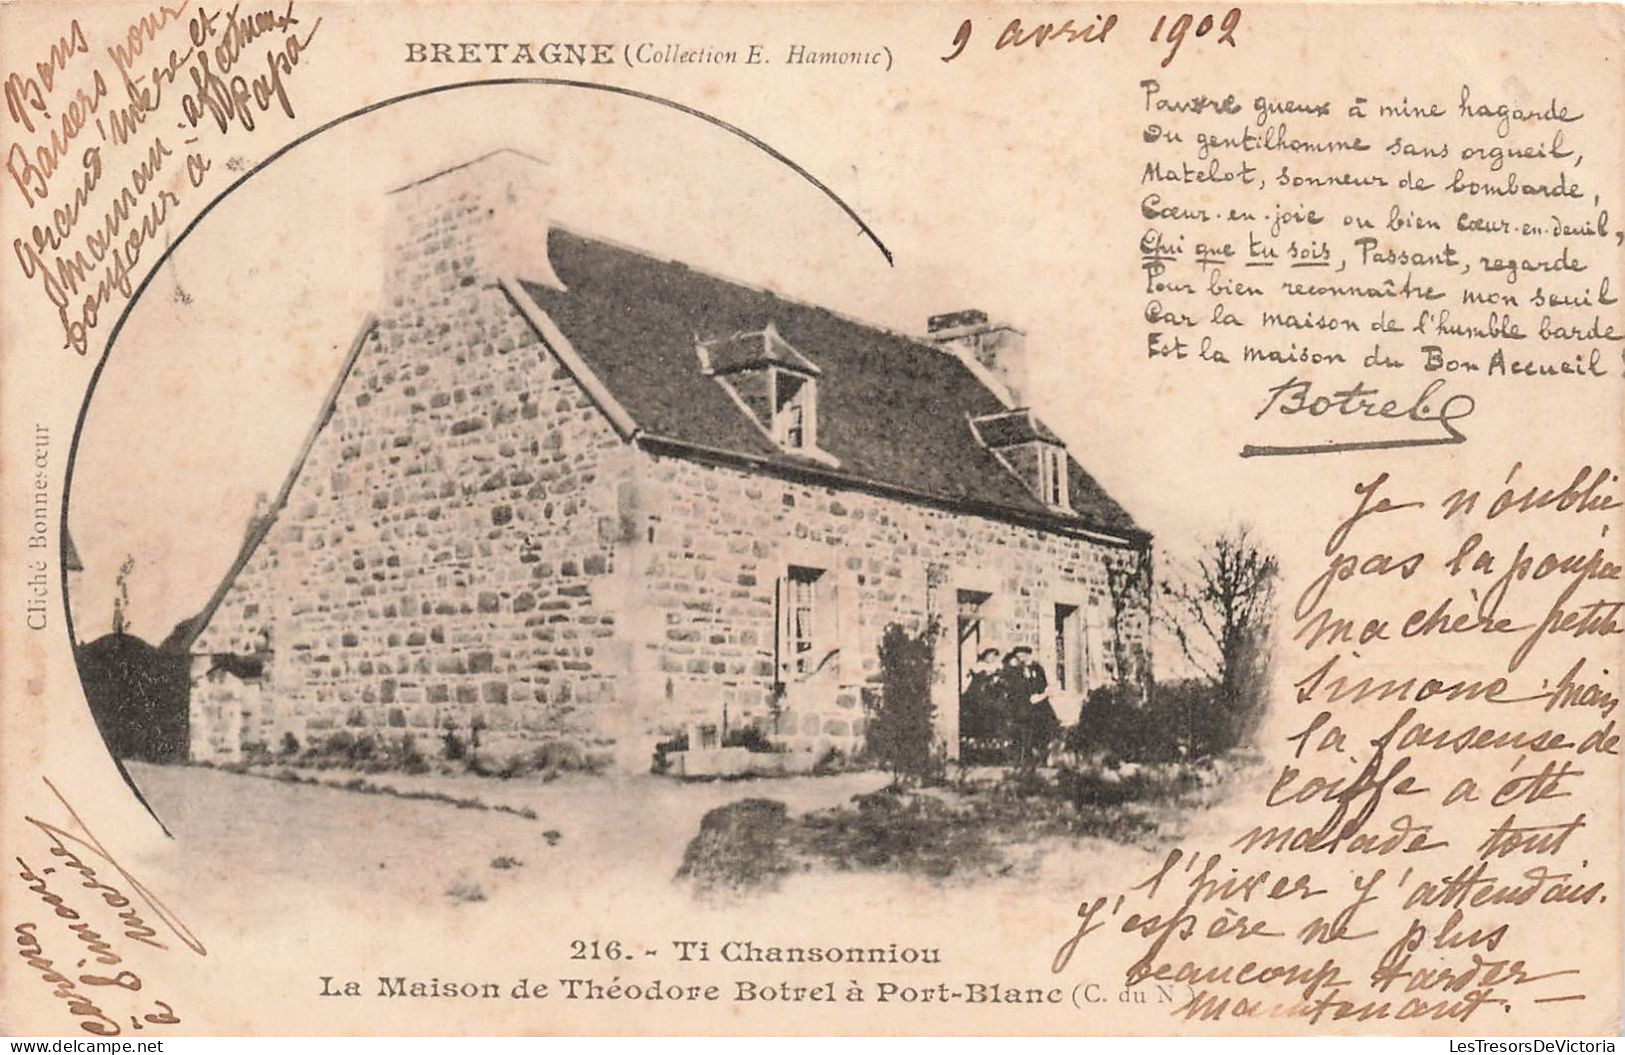 BRETAGNE (Collection E. Hamonic)
9 avril 1902
Bons
Baisers pour
grand'mère et
maman. affectueux
bonjour à Papa
Pauvre gueux à mine hagarde
Ou gentilhomme sans orgueil,
Matelot, sonneur de bombarde,
Cœur-en-joie ou bien cœur-en-deuil,
Qui que tu sois, Passant, regarde
Pour bien reconnaître mon seuil
Car la maison de l'humble barde
Est la maison du Bon Accueil !
Botrel
Je n'oublie
pas la poupée
ma chère petite
Simone. mais
la faiseuse de
coiffe a été
malade tout
l'hiver j'attendais.
J'espère ne plus
beaucoup tarder
maintenant. —
Cliché Bonnesœur
à Simone
Marie
216. - Ti Chansonniou
La Maison de Théodore Botrel à Port-Blanc (C. du N.)
LesTresorsDeVictoria